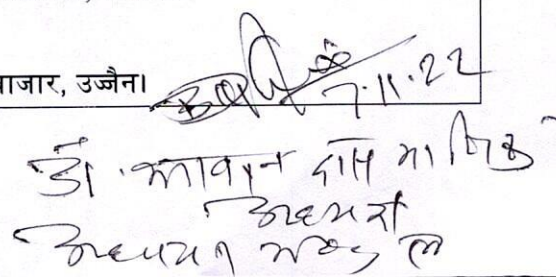 ाजार, उज्जैन।
7.11.22
डॉ. भगवान दास मानिक
अध्यक्ष
अध्ययन मण्डल